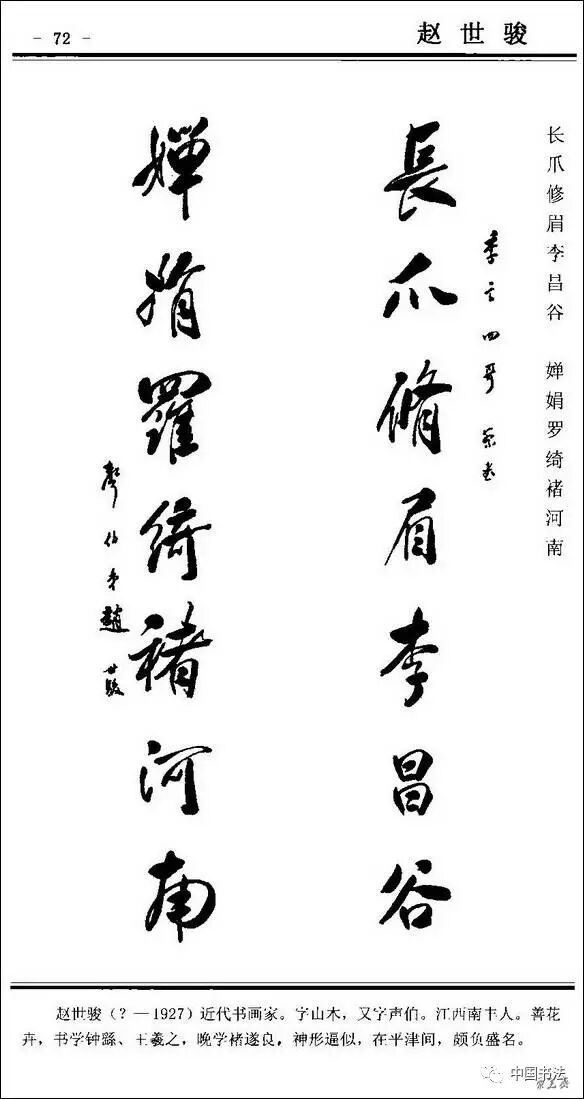 - 72 -
赵世骏
长爪修眉李昌谷 婵娟罗绮褚河南
長爪脩眉李昌谷
四哥
嬋娟羅綺褚河南
聲伯弟趙世駿
赵世骏（？—1927）近代书画家。字山木，又字声伯。江西南丰人。善花
卉，书学钟繇、王羲之，晚学褚遂良，神形逼似，在平津间，颇负盛名。
中国书法